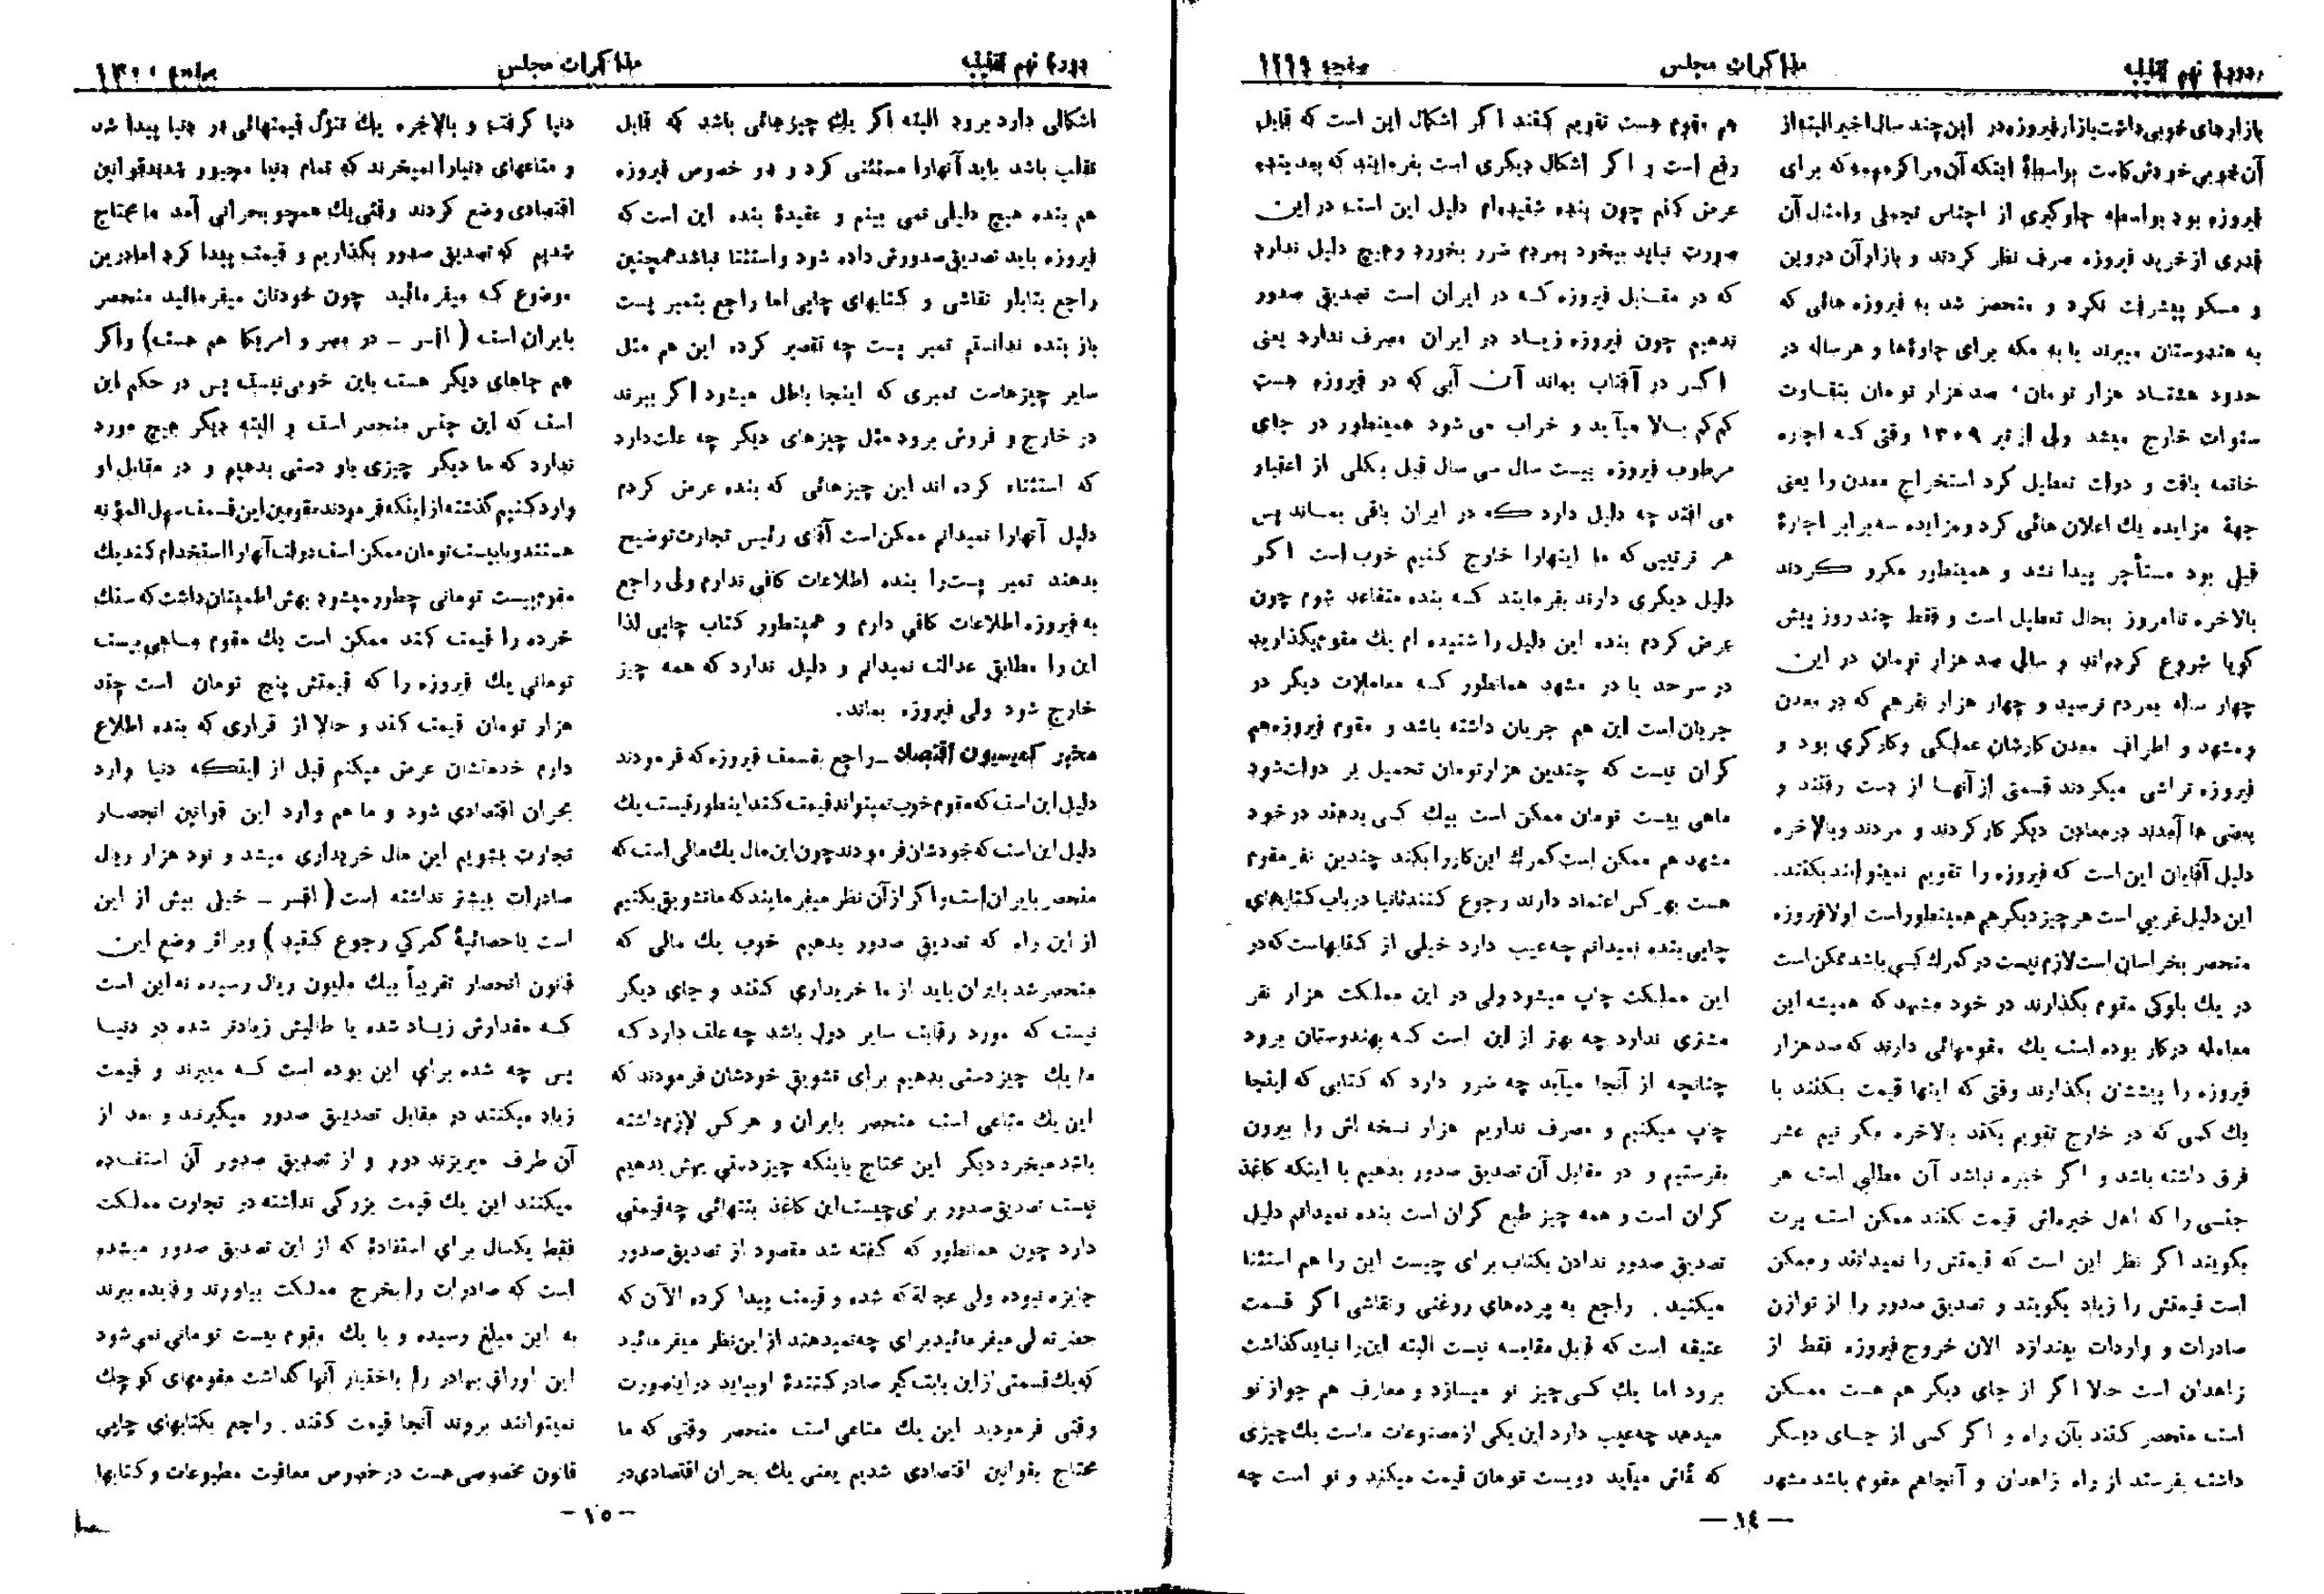 دوره نهم تقنینیه
مذاکرات مجلس
صفحه ۱۲۹۹
بازارهای خوبی داشت بازار فیروزه در این چند سال اخیر البته از
آن خوبی خودش کاست بواسطهٔ اینکه آن مراکز عمده که برای
فیروزه بود بواسطه جلوگیری از اجناس تجملی و امثال آن
قدری از خرید فیروزه صرف نظر کردند و بازار آن در وین
و مسکو پیشرفت نکرد و منحصر شد به فیروزه هائی که
به هندوستان میبرند یا به مکه برای جاوه‌ها و هر ساله در
حدود هشتاد هزار تومان، صد هزار تومان بتفاوت
سنوات خارج میشد ولی از تیر ۱۳۰۹ وقتی که اجاره
خاتمه یافت و دولت تعطیل کرد استخراج معدن را یعنی
جهة مزایده یك اعلان هائی کرد و مزایده سه برابر اجارهٔ
قبلی بود مستأجر پیدا نشد و همینطور مکرر کردند
بالاخره تا امروز بحال تعطیل است و فقط چند روز پیش
گویا شروع کرده‌اند و سالی صد هزار تومان در این
چهار ساله بمردم نرسید و چهار هزار نفر هم که در معدن
و مشهد و اطراف معدن کارشان عملگی و کارگری بود و
فیروزه تراشی میکردند قسمتی از آنها از دست رفتند و
بعضی ها آمدند در معادن دیگر کار کردند و مردند و بالاخره
دلیل آقایان این است که فیروزه را تقویم نمیتوانند بکنند.
این دلیل غریبی است هر چیز دیگر هم همینطور است اولا فیروزه
منحصر بخراسان است لازم نیست در گمرك کسی باشد ممکن است
در یك بلوکی مقوم بگذارند در خود مشهد که همیشه این
معامله در کار بوده است یك مقومهائی دارند که صد هزار
فیروزه را پیششان بگذارند وقتی که اینها قیمت بکنند با
یك کسی که در خارج تقویم بکند بالاخره مگر نیم عشر
فرق داشته باشد و اگر خبره نباشد آن مطلبی است هر
جنسی را که اهل خبره‌اش قیمت نکنند ممکن است پرت
بگویند اگر نظر این است که قیمتش را نمیدانند و ممکن
است قیمتش را زیاد بگویند و تصدیق صدور را از توازن
صادرات و واردات بیندازد الان خروج فیروزه فقط از
زاهدان است حالا اگر از جای دیگر هم هست ممکن
است منحصر کنند بآن راه و اگر کسی از جای دیگر
داشت بفرستد از راه زاهدان و آنجا هم مقوم باشد مشهد
هم مقوم هست تقویم کنند اگر اشکال این است که قابل
رفع است و اگر اشکال دیگری است بفرمایند که بعد بنده
عرض کنم چون بنده شنیده‌ام دلیل این است در این
صورت نباید بیخود بمردم ضرر بخورد و هیچ دلیل ندارد
که در مقابل فیروزه که در ایران است تصدیق صدور
ندهیم چون فیروزه زیاد در ایران مصرف ندارد یعنی
اگر در آفتاب بماند آن آبی که در فیروزه هست
کم کم بالا میآید و خراب می شود همینطور در جای
مرطوب فیروزه بیست سال سی سال قبل بکلی از اعتبار
می افتد چه دلیل دارد که در ایران باقی بماند پس
هر ترتیبی که ما اینهارا خارج کنیم خوب است اگر
دلیل دیگری دارند بفرمایند که بنده متقاعد شوم چون
عرض کردم بنده این دلیل را شنیده ام یك مقوم بگذارید
در سرحد یا در مشهد همانطور که معاملات دیگر در
جریان است این هم جریان داشته باشد و مقوم فیروزه هم
گران نیست که چندین هزار تومان تحمیل بر دولت شود
ماهی بیست تومان ممکن است بیك کسی بدهند در خود
مشهد هم ممکن است گمرك این کار را بکند چندین نفر مقوم
هست بهر کس اعتماد دارند رجوع کنند ثانیا در باب کتابهای
چاپی بنده نمیدانم چه عیب دارد خیلی از کتابهاست که در
این مملکت چاپ میشود ولی در این مملکت هزار نفر
مشتری ندارد چه بهتر از این است که بهندوستان برود
چنانچه از آنجا میآید چه ضرر دارد که کتابی که اینجا
چاپ میکنیم و مصرف نداریم هزار نسخه اش را بیرون
بفرستیم و در مقابل آن تصدیق صدور بدهیم با اینکه کاغذ
گران است و همه چیز طبع گران است بنده نمیدانم دلیل
تصدیق صدور ندادن بکتاب برای چیست این را هم استثنا
میکنید. راجع به پرده‌های روغنی و نقاشی اگر قسمت
عتیقه است که قابل مقایسه نیست البته این را نباید گذاشت
برود اما یك کسی چیز نو میسازد و معارف هم جواز نو
میدهد چه عیب دارد این یکی از مصنوعات ماست یك چیزی
که نقاش میآید دویست تومان قیمت میکند و نو است چه
— ۱٤ —
دوره نهم تقنینیه
مذاکرات مجلس
صفحه ۱۳۰۰
اشکالی دارد برود البته اگر یك چیزهائی باشد که قابل
تقلب باشد باید آنهارا مستثنی کرد و در خصوص فیروزه
هم بنده هیچ دلیلی نمی بینم و عقیدهٔ بنده این است که
فیروزه باید تصدیق صدورش داده شود و استثنا نباشد همچنین
راجع بتابلو نقاشی و کتابهای چاپی اما راجع بتمبر پست
باز بنده ندانستم تمبر پست چه تقصیر کرده این هم مثل
سایر چیزهاست تمبری که اینجا باطل میشود اگر ببرند
در خارج و فروش برود مثل چیزهای دیگر چه علت دارد
که استثناء کرده اند این چیزهائی که بنده عرض کردم
دلیل آنهارا نمیدانم ممکن است آقای رئیس تجارت توضیح
بدهند تمبر پست را بنده اطلاعات کافی ندارم ولی راجع
به فیروزه اطلاعات کافی دارم و همینطور کتاب چاپی لذا
این را مطابق عدالت نمیدانم و دلیل ندارد که همه چیز
خارج شود ولی فیروزه بماند.
مخبر کمیسیون اقتصاد – راجع بقسمت فیروزه که فرمودند
دلیل این است که مقوم خوب نمیتواند قیمت کند اینطور نیست یك
دلیل این است که خودشان فرمودند چون این مال یك مالی است که
منحصر بایران است و اگر از آن نظر میفرمایند که ما تشویق بکنیم
از این راه که تصدیق صدور بدهیم خوب یك مالی که
منحصر شد بایران باید از ما خریداری کنند و جای دیگر
نیست که مورد رقابت سایر دول باشد چه علت دارد که
ما یك چیز دستی بدهیم برای تشویق خودشان فرمودند که
این یك متاعی است منحصر بایران و هر کس لازم داشته
باشد میخرد دیگر این محتاج باینکه چیز دستی بهش بدهیم
نیست تصدیق صدور برای چیست این کاغذ بتنهائی چه قیمتی
دارد چون همانطور که گفته شد مقصود از تصدیق صدور
جایزه نبوده ولی عجالة که شده و قیمت پیدا کرده الآن که
حضرتعالی میفرمائید برای چه نمیدهند از این نظر میفرمائید
که یك قسمتی از این بابت گیر صادر کنندهٔ او بیاید در اینصورت
وقتی فرمودید این یك متاعی است منحصر وقتی که ما
محتاج بقوانین اقتصادی شدیم یعنی یك بحران اقتصادی در
دنیا گرفت و بالاخره یك تنزل قیمتهائی در دنیا پیدا شد
و متاعهای دنیارا نمیخرند که تمام دنیا مجبور شدند قوانین
اقتصادی وضع کردند وقتی یك همچو بحرانی آمد ما محتاج
شدیم که تصدیق صدور بگذاریم و قیمت پیدا کرد اما در این
موضوع که میفرمائید چون خودتان میفرمائید منحصر
بایران است ( افسر – در مصر و امریکا هم هست) و اگر
هم جاهای دیگر هست باین خوبی نیست پس در حکم این
است که این جنس منحصر است و البته دیگر هیچ مورد
ندارد که ما دیگر چیزی باو دستی بدهیم و در مقابل او
وارد کنیم گذشته از اینکه فرمودند مقومین این قسمت سهل المؤنه
هستند و با بیست تومان ممکن است دولت آنهارا استخدام کند یك
مقوم بیست تومانی چطور میشود بهش اطمینان داشت که سنك
خرده را قیمت کند ممکن است یك مقوم ماهی بیست
تومانی یك فیروزه را که قیمتش پنج تومان است چند
هزار تومان قیمت کند و حالا از قراری که بنده اطلاع
دارم خدمتشان عرض میکنم قبل از اینکه دنیا وارد
بحران اقتصادی شود و ما هم وارد این قوانین انحصار
تجارت بشویم این مال خریداری میشد و نود هزار ریال
صادرات بیشتر نداشته است ( افسر – خیلی بیش از این
است باحصائیهٔ گمرکی رجوع کنید ) و بر اثر وضع این
قانون انحصار تقریباً بیك ملیون ریال رسیده نه این است
که مقدارش زیاد شده یا طالبش زیادتر شده در دنیا
پس چه شده برای این بوده است که میبرند و قیمت
زیاد میکنند در مقابل تصدیق صدور میگیرند و بعد از
آن طرف میریزند دور و از تصدیق صدور آن استفاده
میکنند این یك قیمت بزرگی نداشته در تجارت مملکت
فقط یکسال برای استفادهٔ که از این تصدیق صدور میشده
است که صادرات را بخرج مملکت بیاورند و فایده ببرند
به این مبلغ رسیده و با یك مقوم بیست تومانی نمی شود
این اوراق بهادر را باختیار آنها گذاشت مقومهای کوچك
نمیتوانند بروند آنجا قیمت کنند. راجع بکتابهای چاپی
قانون مخصوصی هست در خصوص معافیت مطبوعات و کتابها
— ۱٥ —